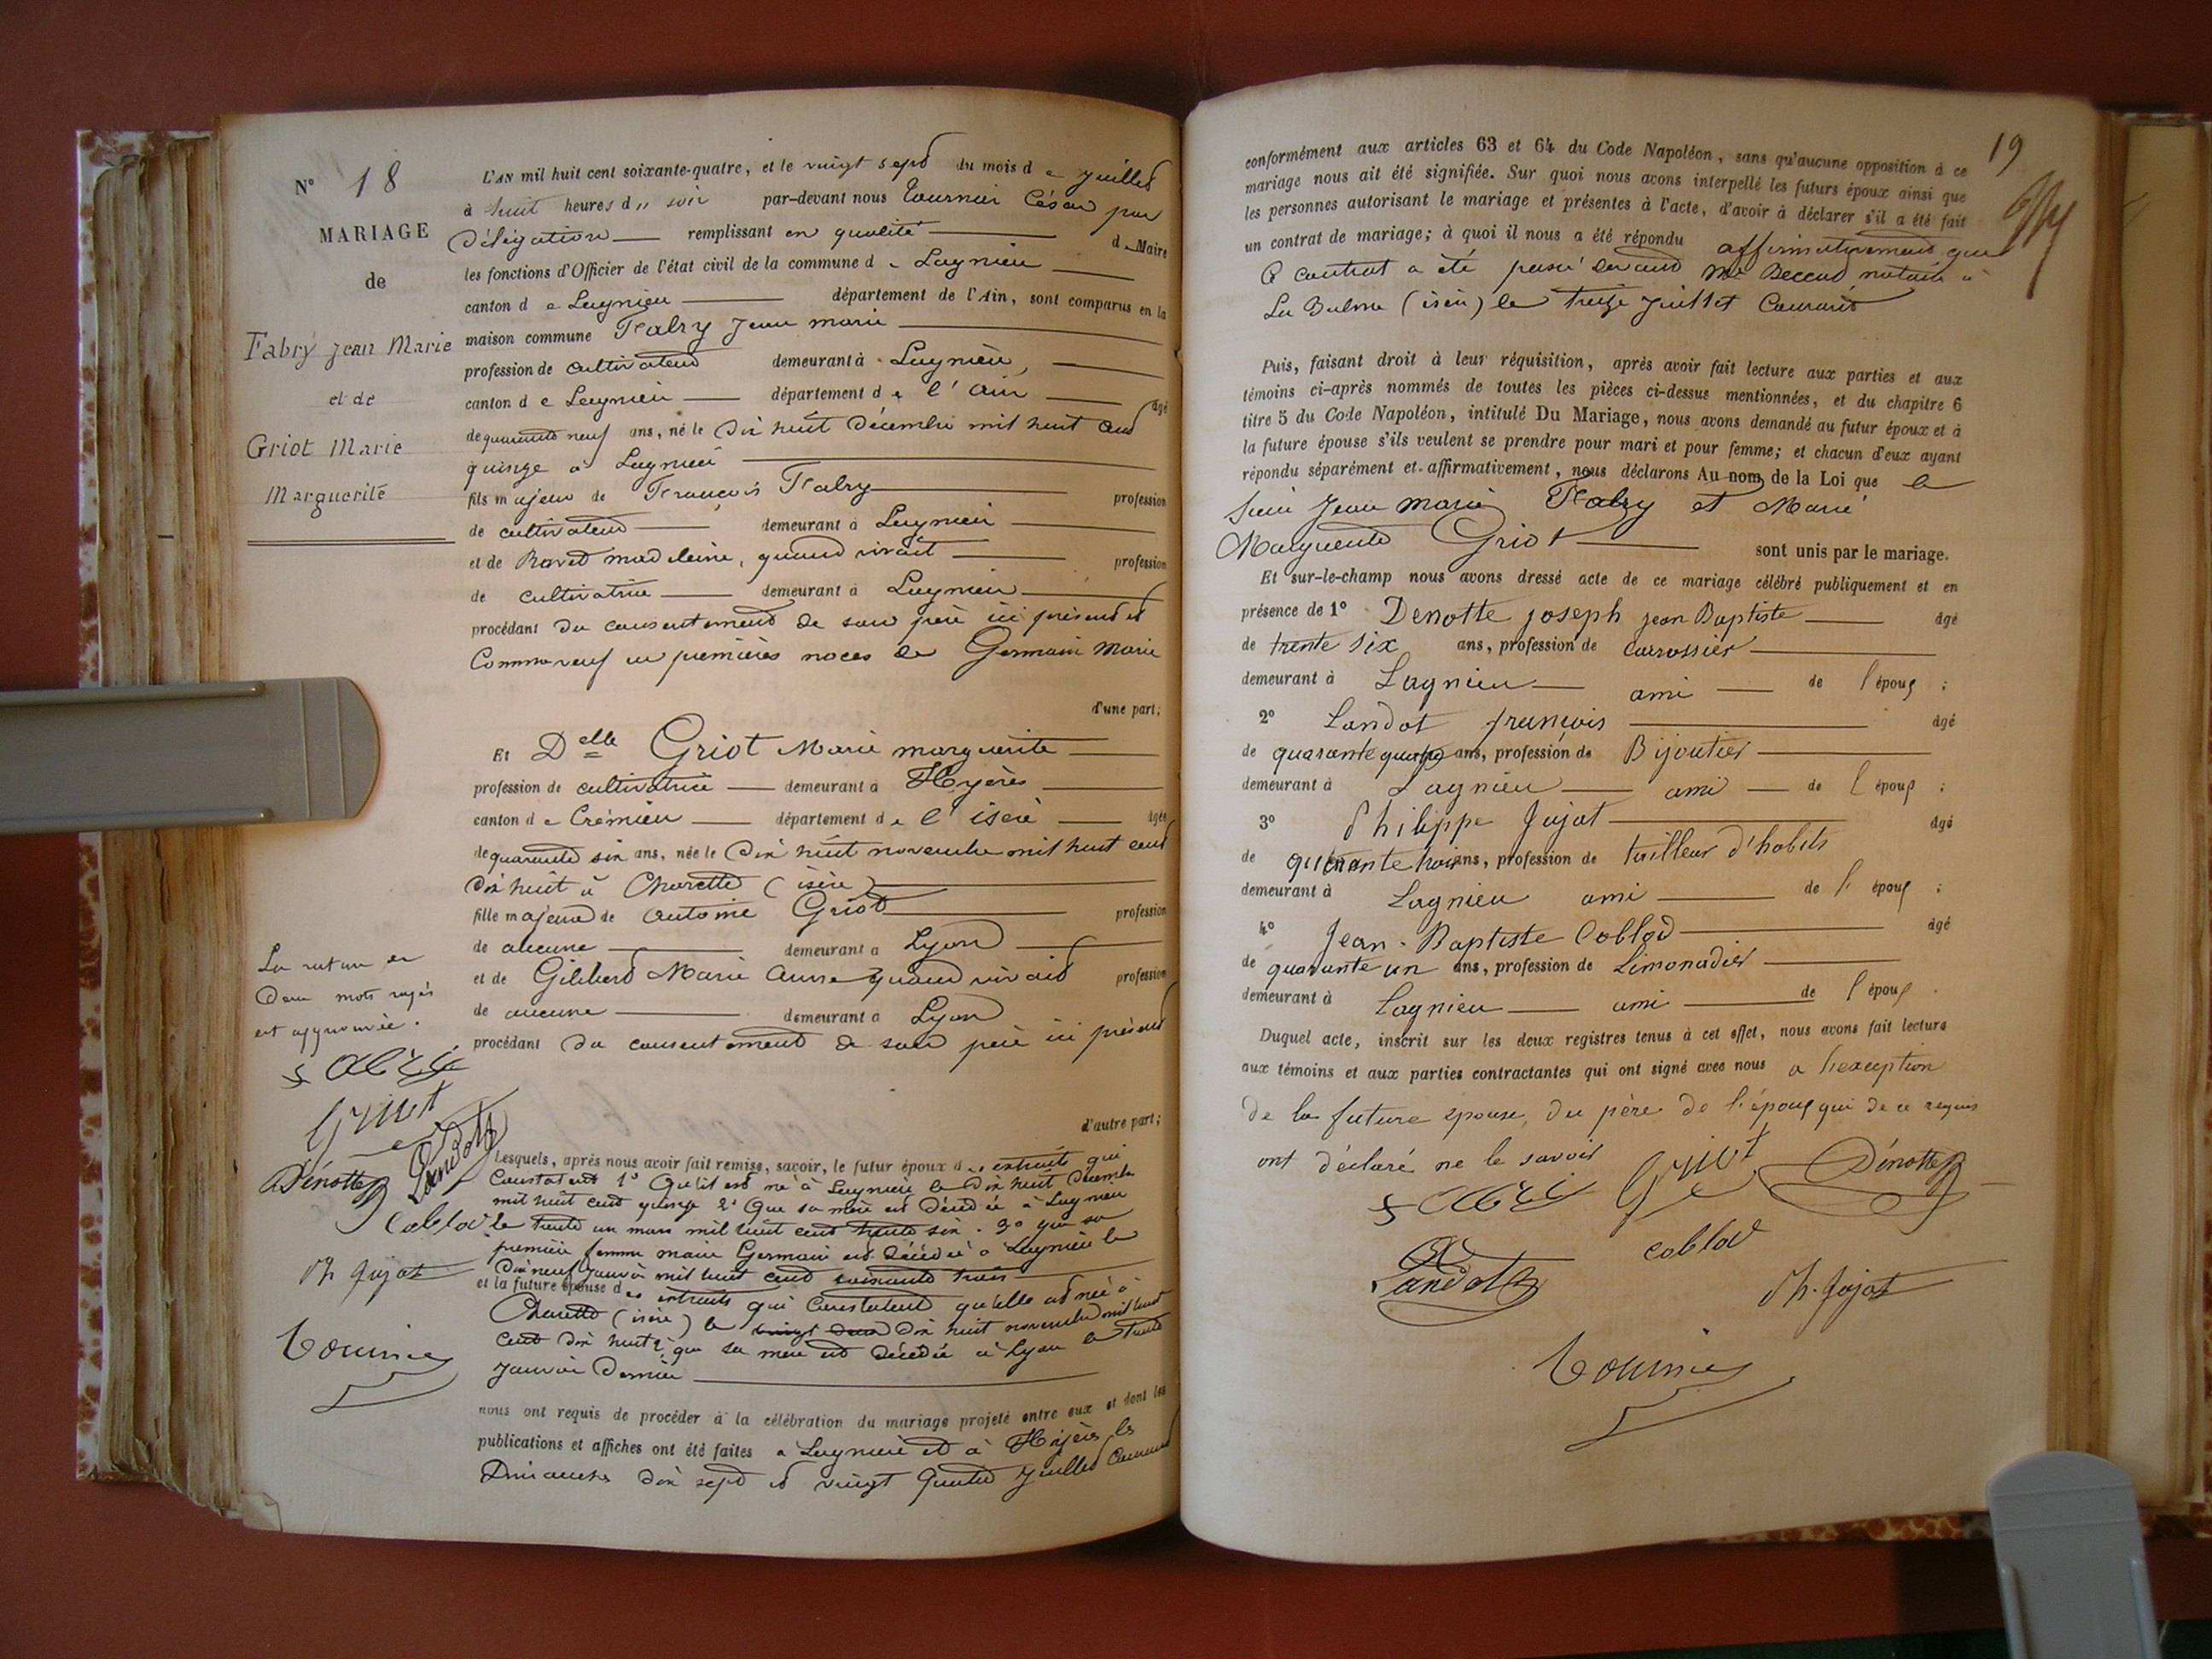 N° 18
MARIAGE
de
Fabry Jean Marie
et de
Griot Marie
Marguerite
L'AN mil huit cent soixante-quatre, et le vingt sept du mois de juillet
à huit heures du soir par-devant nous Tournier César par
Délégation remplissant en qualité de Maire
les fonctions d'Officier de l'état civil de la commune de Lagnieu
canton de Lagnieu département de l'Ain, sont comparus en la
maison commune Fabry Jean marie
profession de cultivateur demeurant à Lagnieu,
canton de Lagnieu département de l'Ain âgé
de quarante neuf ans, né le dix huit Décembre mil huit cent
quinze à Lagnieu
fils majeur de François Fabry profession
de cultivateur demeurant à Lagnieu
et de Ravet madeleine, quand vivait profession
de cultivatrice demeurant à Lagnieu
procédant du consentement de son père ici présent et
Comme veuf en premières noces de Germain Marie
d'une part;
Et Delle Griot Marie marguerite
profession de cultivatrice demeurant à Hyères
canton de Crémieu département de l'isère âgée
de quarante six ans, née le Dix huit novembre mil huit cent
dix huit à Charette (isère)
fille majeure de Antoine Griot profession
de aucune demeurant à Lyon
et de Marie Anne quand vivait profession
de aucune demeurant à Lyon
procédant du consentement de son père ici présent
d'autre part;
La rature de
Deux mots rayés
est approuvée.
Griot
Dénotte
Landot
Coblod
Ph Jujat
Tournier
Lesquels, après nous avoir fait remise, savoir, le futur époux des extraits qui
Constatent 1° Qu'il est né à Lagnieu le dix huit Décembre
mil huit cent quinze 2° Que sa mère est Décédée à Lagnieu
le trente un mars mil huit cent trente six. 3° que sa
première femme marie Germain est Décédée à Lagnieu le
Dix neuf Janvier mil huit cent soixante trois
et la future épouse des extraits qui Constatent qu'elle est née à
Charette (isère) le vingt deux dix huit novembre mil huit
cent dix huit 2° que sa mère est Décédée à Lyon le trente
Janvier Dernier
nous ont requis de procéder à la célébration du mariage projeté entre eux et dont les
publications et affiches ont été faites à Lagnieu et à Hyères les
Dimanches dix sept et vingt Quatre Juillet Courant
19
conformément aux articles 63 et 64 du Code Napoléon, sans qu'aucune opposition à ce
mariage nous ait été signifiée. Sur quoi nous avons interpellé les futurs époux ainsi que
les personnes autorisant le mariage et présentes à l'acte, d'avoir à déclarer s'il a été fait
un contrat de mariage; à quoi il nous a été répondu affirmativement que
Ce contrat a été passé devant Me notaire à
La Balme (isère) le treize Juillet Courant
Puis, faisant droit à leur réquisition, après avoir fait lecture aux parties et aux
témoins ci-après nommés de toutes les pièces ci-dessus mentionnées, et du chapitre 6
titre 5 du Code Napoléon, intitulé Du Mariage, nous avons demandé au futur époux et à
la future épouse s'ils veulent se prendre pour mari et pour femme; et chacun d'eux ayant
répondu séparément et affirmativement, nous déclarons Au nom de la Loi que le
Sieur Jean Marie Fabry et Marie
Marguerite Griot sont unis par le mariage.
Et sur-le-champ nous avons dressé acte de ce mariage célébré publiquement et en
présence de 1° Denotte joseph jean Baptiste âgé
de trente six ans, profession de Carrossier
demeurant à Lagnieu ami de l'époux ;
2° Landot françois âgé
de quarante quatre ans, profession de Bijoutier
demeurant à Lagnieu ami de l'époux ;
3° Philippe Jujat âgé
de quarante trois ans, profession de tailleur d'habits
demeurant à Lagnieu ami de l'époux ;
4° Jean-Baptiste Coblod âgé
de quarante un ans, profession de Limonadier
demeurant à Lagnieu ami de l'époux.
Duquel acte, inscrit sur les deux registres tenus à cet effet, nous avons fait lecture
aux témoins et aux parties contractantes qui ont signé avec nous a l'exception
de la future epouse, du père de l'époux qui de ce requis
ont déclaré ne le savoir
Griot
Dénotte
Landot
Coblod
Ph. Jujat
Tournier